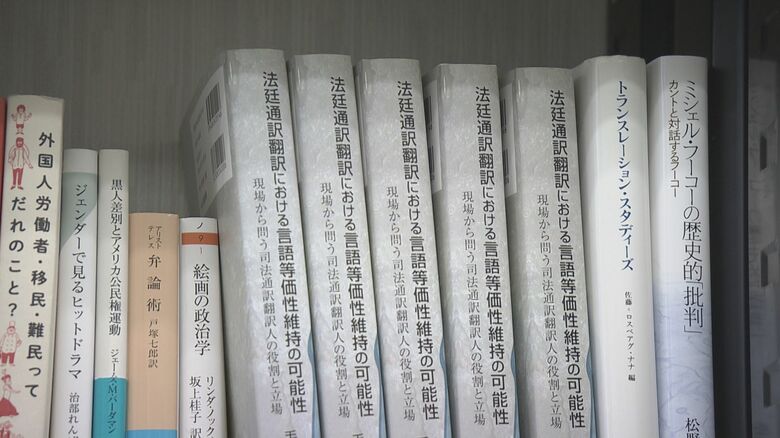 外国人労働者・移民・難民って
だれのこと?
ジェンダーで見るヒットドラマ
治部れんげ
黒人差別とアメリカ公民権運動
ジェームス・M・バーダマン
アリスト
テレス
弁論術
戸塚七郎訳
ノ9-1
絵画の政治学
リンダ・ノック
坂上桂子 訳
法廷通訳翻訳における言語等価性維持の可能性
現場から問う司法通訳翻訳人の役割と立場
毛
法廷通訳翻訳における言語等価性維持の可能性
現場から問う司法通訳翻訳人の役割と立場
法廷通訳翻訳における言語等価性維持の可能性
現場から問う司法通訳翻訳人の役割と立場
法廷通訳翻訳における言語等価性維持の可能性
現場から問う司法通訳翻訳人の役割と立場
法廷通訳翻訳における言語等価性維持の可能性
現場から問う司法通訳翻訳人の役割と立場
トランスレーション・スタディーズ
佐藤=ロスベアグ・ナナ 編
ミシェル・フーコーの歴史的「批判」
カントと対話するフーコー
松野